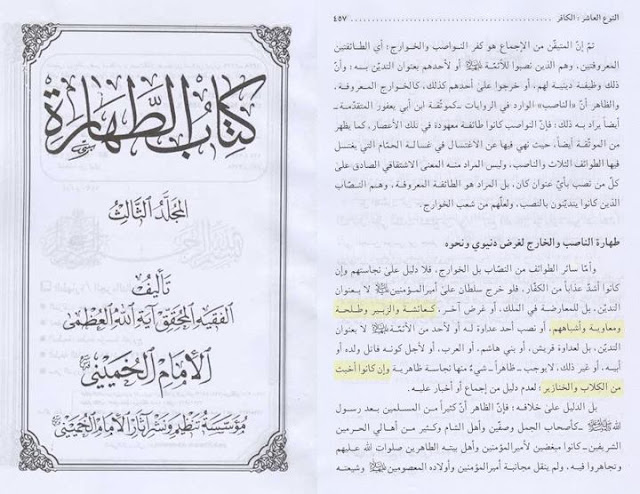 كتاب الطهارة
المجلد الثالث
تأليف
الفقيه المحقق آية الله العظمى
الإمام الخميني
مؤسسة تنظيم ونشر آثار الإمام الخميني
النوع العاشر : الكافر ٤٥٧
ثمّ إنّ المتيقّن من الإجماع هو كفر النواصب والخوارج؛ أي الطائفتين
المعروفتين، وهم الذين نصبوا للأئمّة أو لأحدهم بعنوان التديّن به؛ وأنّ
ذلك وظيفة دينية لهم، أو خرجوا على أحدهم كذلك، كالخوارج المعروفة،
والظاهر أنّ «الناصب» الوارد في الروايات ـكموثّقة ابن أبي يعفور المتقدّمة ـ
أيضاً يراد به ذلك؛ فإنّ النواصب كانوا طائفة معهودة في تلك الأعصار، كما يظهر
من الموثّقة أيضاً، حيث نهي فيها عن الاغتسال في غسالة الحمّام التي يغتسل
فيها الطوائف الثلاث والناصب، وليس المراد منه المعنى الاشتقاقي الصادق على
كلّ من نصب بأيّ عنوان كان، بل المراد هو الطائفة المعروفة، وهم النصّاب
الذين كانوا يتديّنون بالنصب، ولعلّهم من شعب الخوارج.
طهارة الناصب والخارج لغرض دنيوي ونحوه
وأمّا سائر الطوائف من النصّاب بل الخوارج، فلا دليل على نجاستهم وإن
كانوا أشدّ عذاباً من الكفّار، فلو خرج سلطان على أميرالمؤمنين لا بعنوان
التديّن، بل للمعارضة في الملك، أو غرض آخر، كعائشة والزبير وطلحة
ومعاوية وأشباههم، أو نصب أحد عداوة له أو لأحد من الأئمّة لا بعنوان
التديّن، بل لعداوة قريش، أو بني هاشم، أو العرب، أو لأجل كونه قاتل ولده أو
أبيه، أو غير ذلك، لا يوجب ـظاهراًـ شيء منها نجاسة ظاهرية وإن كانوا أخبث
من الكلاب والخنازير؛ لعدم دليل من إجماع أو أخبار عليه.
بل الدليل على خلافه؛ فإنّ الظاهر أنّ كثيراً من المسلمين بعد رسول
الله ـكأصحاب الجمل وصفّين وأهل الشام وكثير من أهالي الحرمين
الشريفين ـ كانوا مبغضين لأميرالمؤمنين وأهل بيته الطاهرين صلوات الله عليهم
وتجاهروا فيه، ولم ينقل مجانبة أميرالمؤمنين وأولاده المعصومين وشيعته